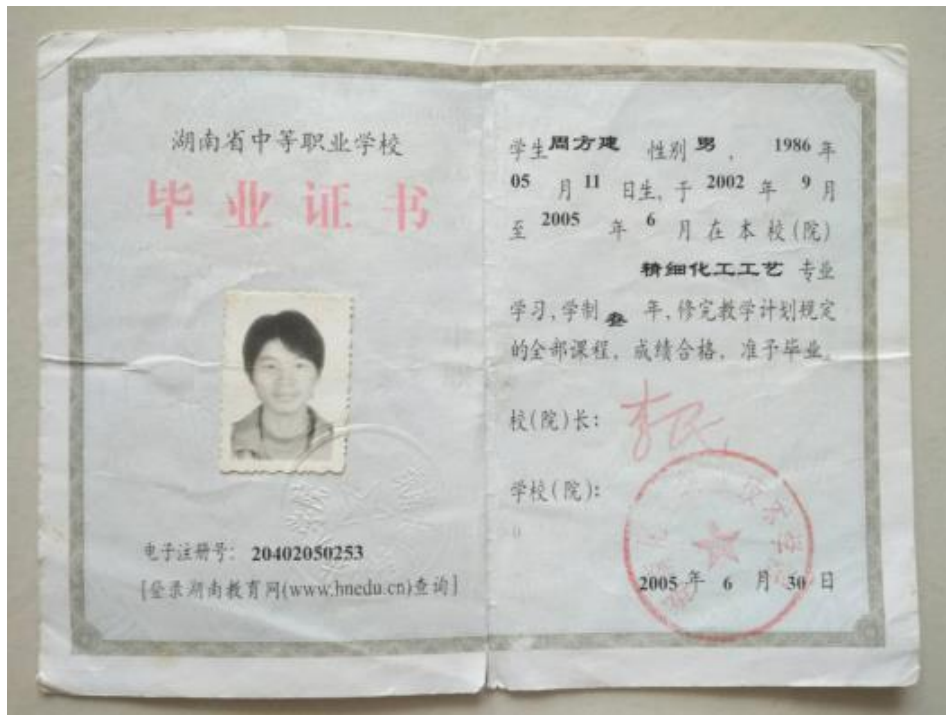 湖南省中等职业学校
毕业证书
电子注册号: 20402050253
[登录湖南教育网(www.hnedu.cn)查询]
学生周方建 性别 男 , 1986 年
05 月 11 日生, 于 2002 年 9 月
至 2005 年 6 月 在 本 校 (院)
精细化工工艺 专业
学习, 学制 叁 年, 修完教学计划规定
的全部课程, 成绩合格, 准予毕业。
校(院)长:
学校(院):
2005 年 6 月 30 日